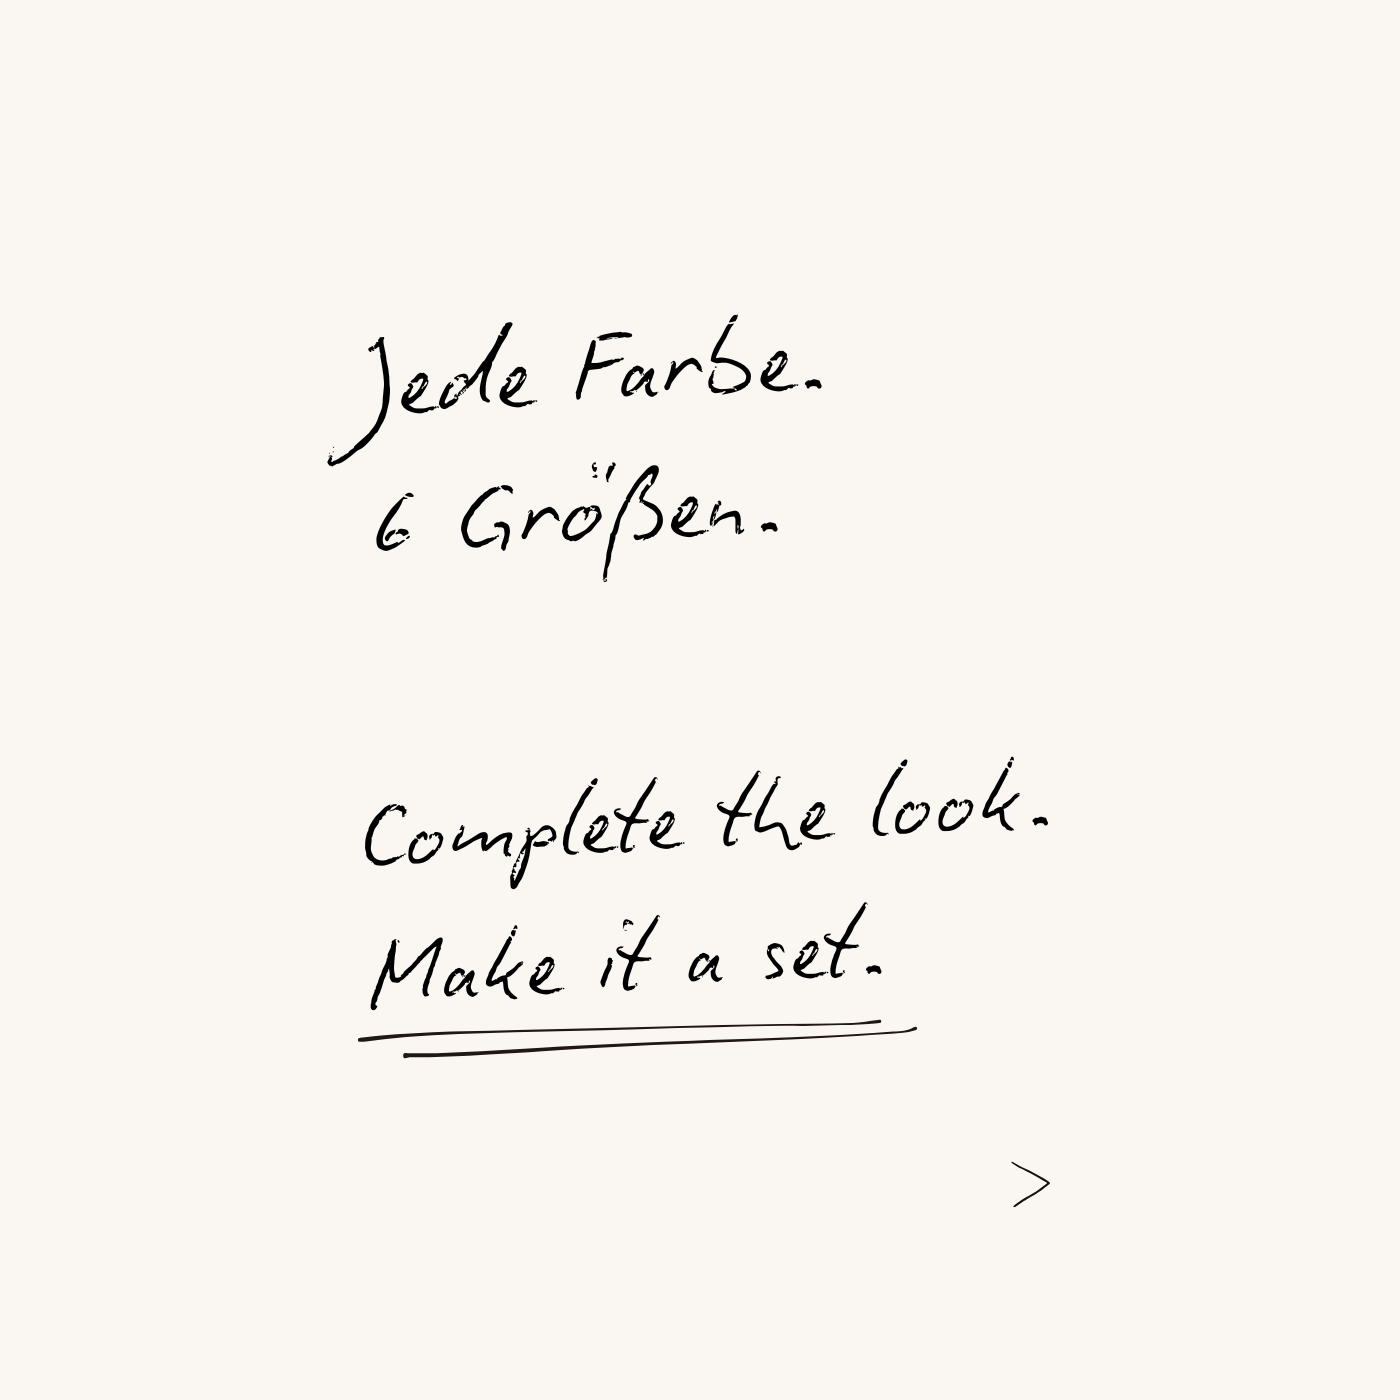 Jede Farbe.
6 Größen.
Complete the look.
Make it a set.
>